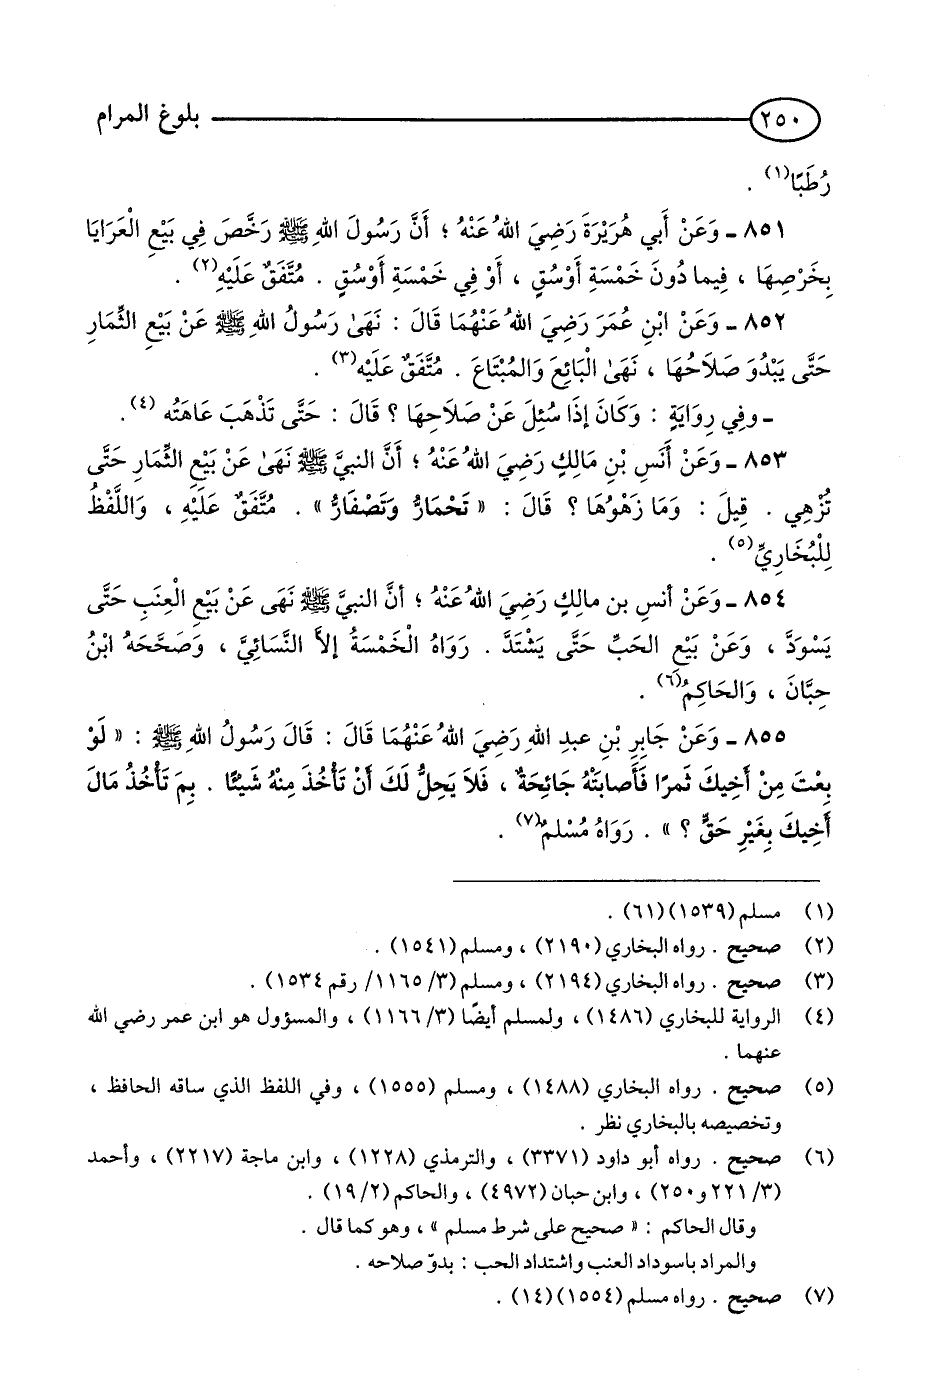 ٢٥٠ بلوغ المرام
رُطَبًا(١) .
٨٥١ ـ وَعَنْ أَبي هُرَيْرَةَ رَضِيَ اللهُ عَنْهُ ؛ أَنَّ رَسُولَ اللهِ ﷺ رَخَّصَ فِي بَيْعِ الْعَرَايَا
بِخَرْصِهَا ، فِيما دُونَ خَمْسَةِ أَوْسُقٍ ، أَوْ فِي خَمْسَةِ أَوْسُقٍ . مُتَّفَقٌ عَلَيْهِ(٢) .
٨٥٢ ـ وَعَنْ ابْنِ عُمَرَ رَضِيَ اللهُ عَنْهُمَا قَالَ : نَهَىٰ رَسُولُ اللهِ ﷺ عَنْ بَيْعِ الثِّمَارِ
حَتَّى يَبْدُوَ صَلَاحُهَا ، نَهَىٰ الْبَائِعَ وَالمُبْتَاعَ . مُتَّفَقٌ عَلَيْه(٣) .
ـ وفِي رِوَايَةٍ : وَكَانَ إذَا سُئِلَ عَنْ صَلَاحِهَا ؟ قَالَ : حَتَّى تَذْهَبَ عَاهَتُه (٤).
٨٥٣ ـ وَعَنْ أَنَسِ بْنِ مَالِكٍ رَضِيَ اللهُ عَنْهُ ؛ أَنَّ النبيَّ ﷺ نَهَىٰ عَنْ بَيْعِ الثِّمَارِ حَتَّى
تُزْهِي . قِيلَ : وَمَا زَهْوُهَا ؟ قَالَ : « تَحْمَارُّ وَتَصْفَارُّ » . مُتَّفَقٌ عَلَيْهِ ، وَاللَّفْظُ
لِلْبُخَارِيِّ(٥) .
٨٥٤ ـ وَعَنْ أنسِ بن مالكٍ رَضِيَ اللهُ عَنْهُ ؛ أنَّ النبيَّ ﷺ نَهَى عَنْ بَيْعِ الْعِنَبِ حَتَّى
يَسْوَدَّ ، وَعَنْ بَيْعِ الحَبِّ حَتَّى يَشْتَدَّ . رَوَاهُ الْخَمْسَةُ إلاَّ النَّسَائِيَّ ، وَصَحَّحَهُ ابْنُ
حِبَّانَ ، وَالحَاكِمُ(٦) .
٨٥٥ ـ وَعَنْ جَابِرِ بْنِ عبدِ اللهِ رَضِيَ اللهُ عَنْهُمَا قَالَ : قَالَ رَسُولُ اللهِ ﷺ : « لَوْ
بِعْتَ مِنْ أَخِيكَ ثَمرًا فَأَصابَتْهُ جَائِحَةٌ ، فَلاَ يَحِلُّ لَكَ أَنْ تَأْخُذَ مِنْهُ شَيْئًا . بِمَ تَأْخُذُ مَالَ
أَخِيكَ بِغَيْرِ حَقٍّ ؟ » . رَوَاهُ مُسْلمٌ(٧) .
(١) مسلم (١٥٣٩)(٦١) .
(٢) صحيح . رواه البخاري (٢١٩٠) ، ومسلم (١٥٤١) .
(٣) صحيح . رواه البخاري (٢١٩٤) ، ومسلم (٣/ ١١٦٥/ رقم ١٥٣٤) .
(٤) الرواية للبخاري (١٤٨٦) ، ولمسلم أيضًا (٣/ ١١٦٦) ، والمسؤول هو ابن عمر رضي الله
عنهما .
(٥) صحيح . رواه البخاري (١٤٨٨) ، ومسلم (١٥٥٥) ، وفي اللفظ الذي ساقه الحافظ ،
وتخصيصه بالبخاري نظر .
(٦) صحيح . رواه أبو داود (٣٣٧١) ، والترمذي (١٢٢٨) ، وابن ماجة (٢٢١٧) ، وأحمد
(٣/ ٢٢١ و٢٥٠) ، وابن حبان (٤٩٧٢) ، والحاكم (٢/ ١٩) .
وقال الحاكم : « صحيح على شرط مسلم » ، وهو كما قال .
والمراد باسوداد العنب واشتداد الحب : بدوّ صلاحه .
(٧) صحيح . رواه مسلم (١٥٥٤)(١٤) .